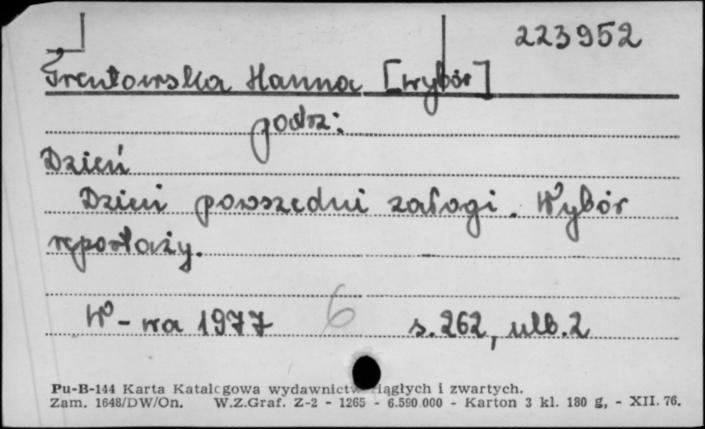 223952
Trentowska Hanna [wybór]
podz:
Dzień
Dzień powszedni załogi. Wybór
reportaży.
W-wa 1977 6 s. 262, ulb. 2
Pu-B-144 Karta Katalogowa wydawnictw ciągłych i zwartych.
Zam. 1648/DW/On. W.Z.Graf. Z-2 - 1265 - 6.590.000 - Karton 3 kl. 180 g, - XII. 76.